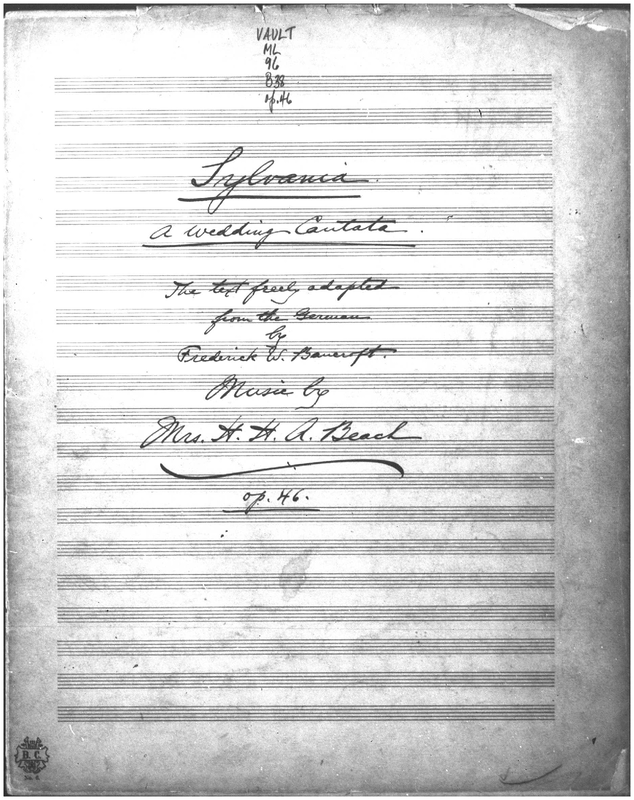 VAULT
ML
96
B38
op.46
Sylvania.
A Wedding Cantata.
The text freely adapted
from the German
by
Frederick W. Bancroft.
Music by
Mrs. H. H. A. Beach
op. 46.
B. C.